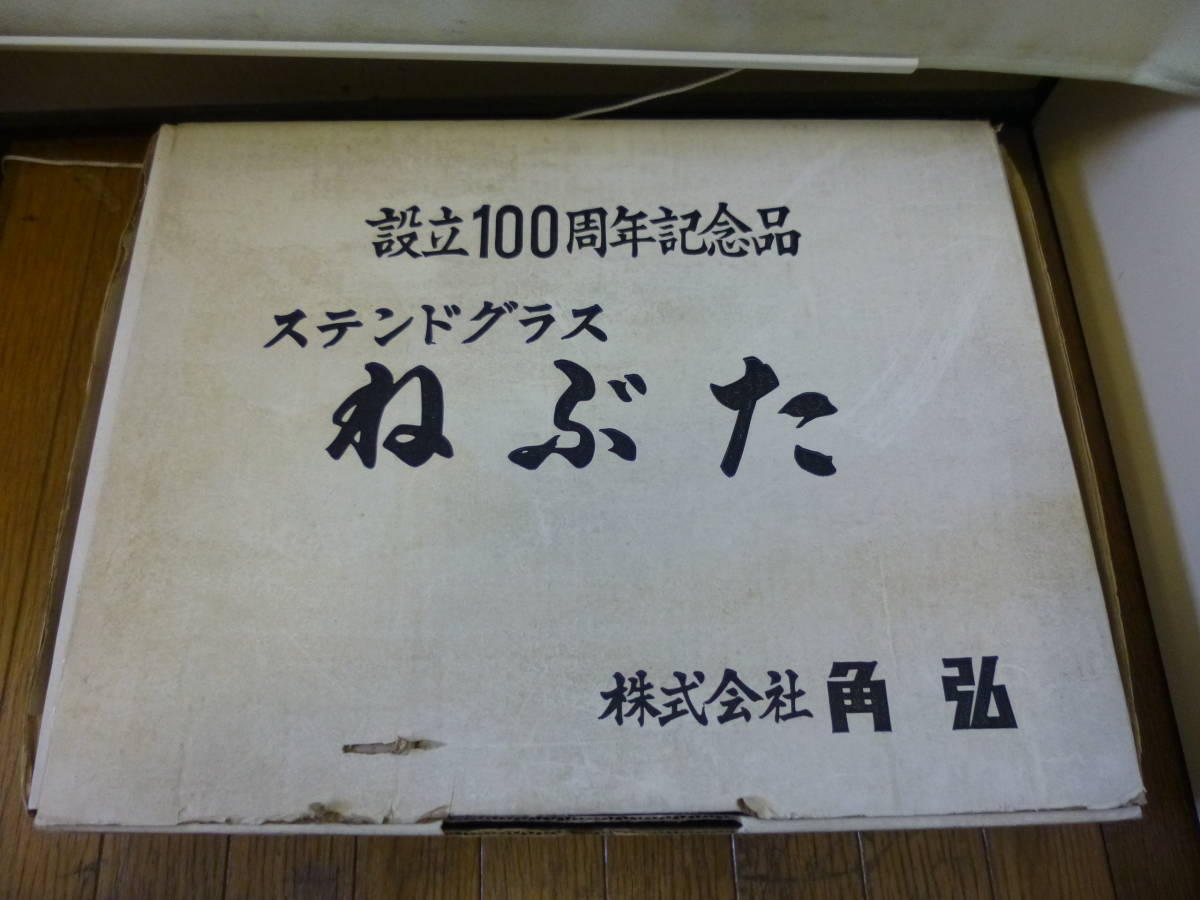 設立100周年記念品
ステンドグラス
ねぶた
株式会社 角弘